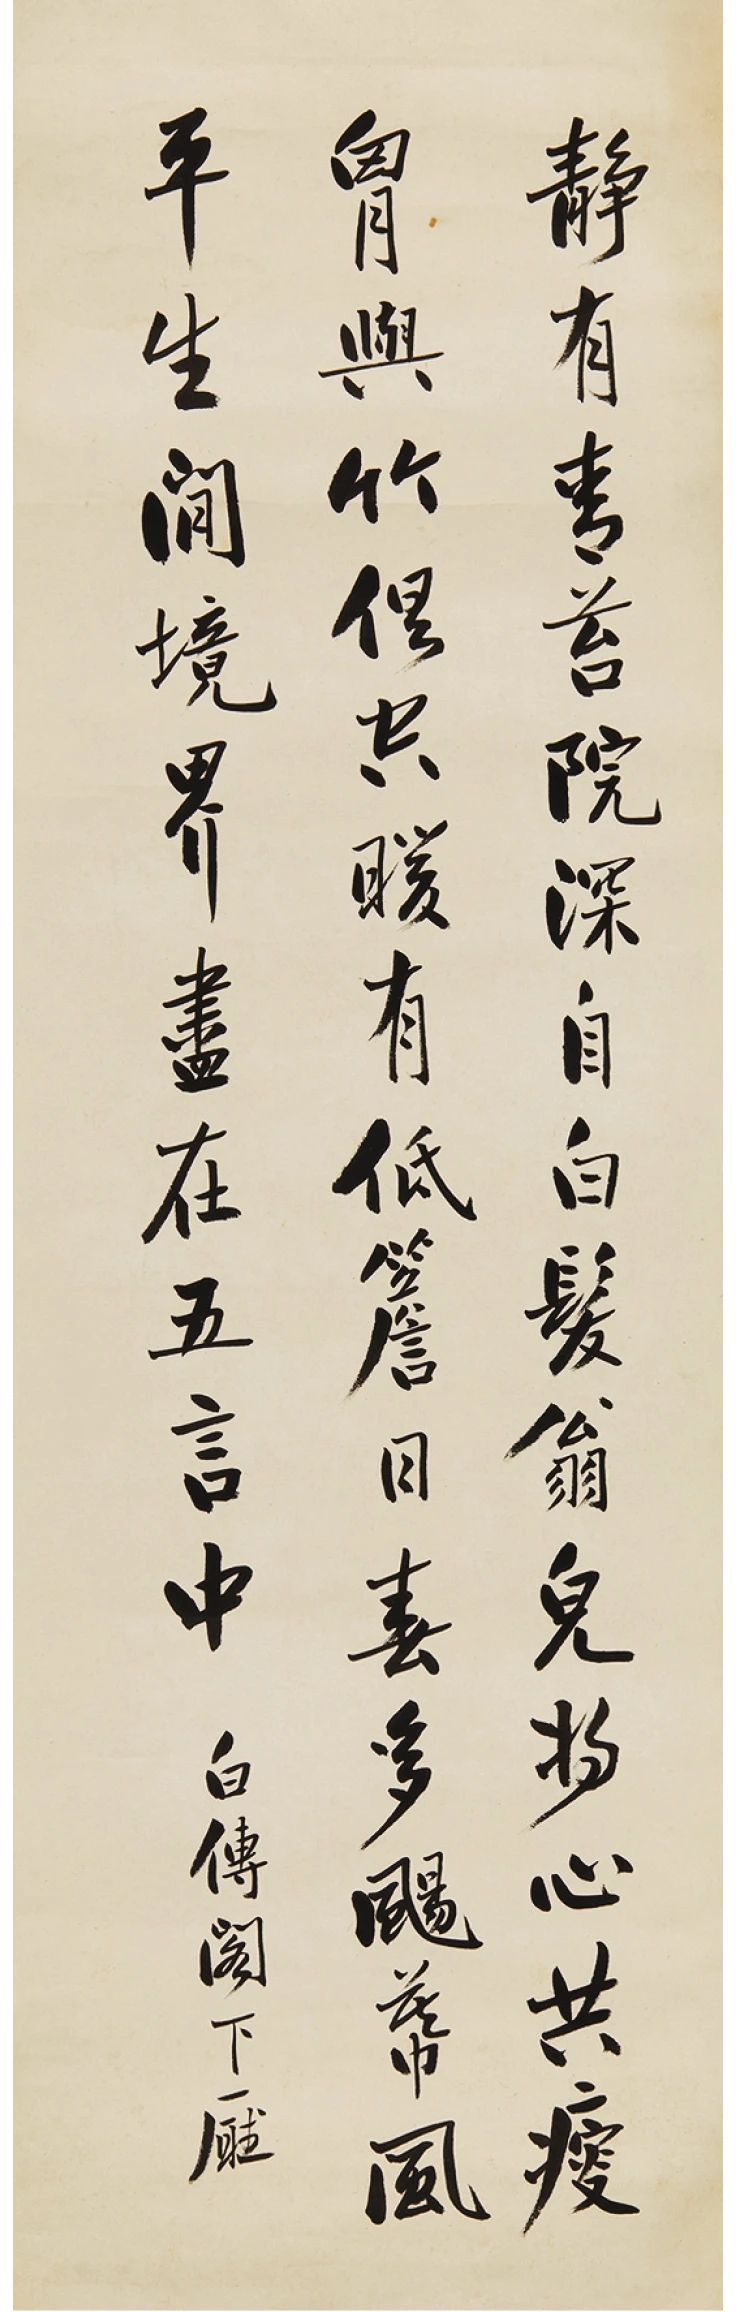 靜有青苔院深自白髮翁皃將心共瘦
胷與竹俱空暖有低簷日春多颺幕風
平生閒境界盡在五言中
白傅閣下廳